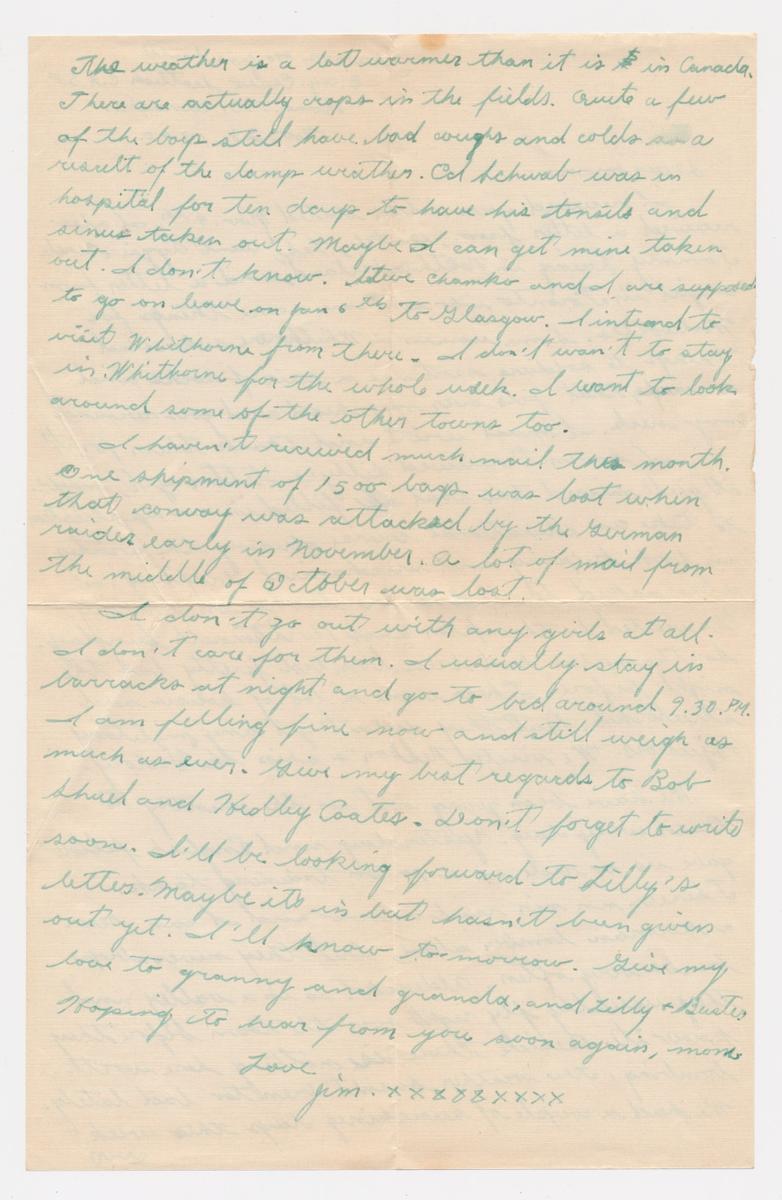 The weather is a lot warmer than it is in Canada.
There are actually crops in the fields. Quite a few
of the boys still have bad coughs and colds as a
result of the damp weather. Ed Schwab was in
hospital for ten days to have his tonsils and
sinus taken out. Maybe I can get mine taken
out. I don't know. Steve Chamko and I are supposed
to go on leave on Jan 6th to Glasgow. I intend to
visit Whithorne from there. I don't want to stay
in Whithorne for the whole week. I want to look
around some of the other towns too.
I haven't received much mail this month.
One shipment of 1500 bags was lost when
that convoy was attacked by the German
raider early in November. A lot of mail from
the middle of October was lost.
I don't go out with any girls at all.
I don't care for them. I usually stay in
barracks at night and go to bed around 9.30.P.M.
I am felling fine now and still weigh as
much as ever. Give my best regards to Bob
Shuel and Hedley Coates. Don't forget to write
soon. I'll be looking forward to Lilly's
letter. Maybe its in but hasn't been given
out yet. I'll know to-morrow. Give my
love to granny and granda, and Lilly + Buster
Hoping to hear from you soon again, mom
Love
Jim. xxxxxxxxx